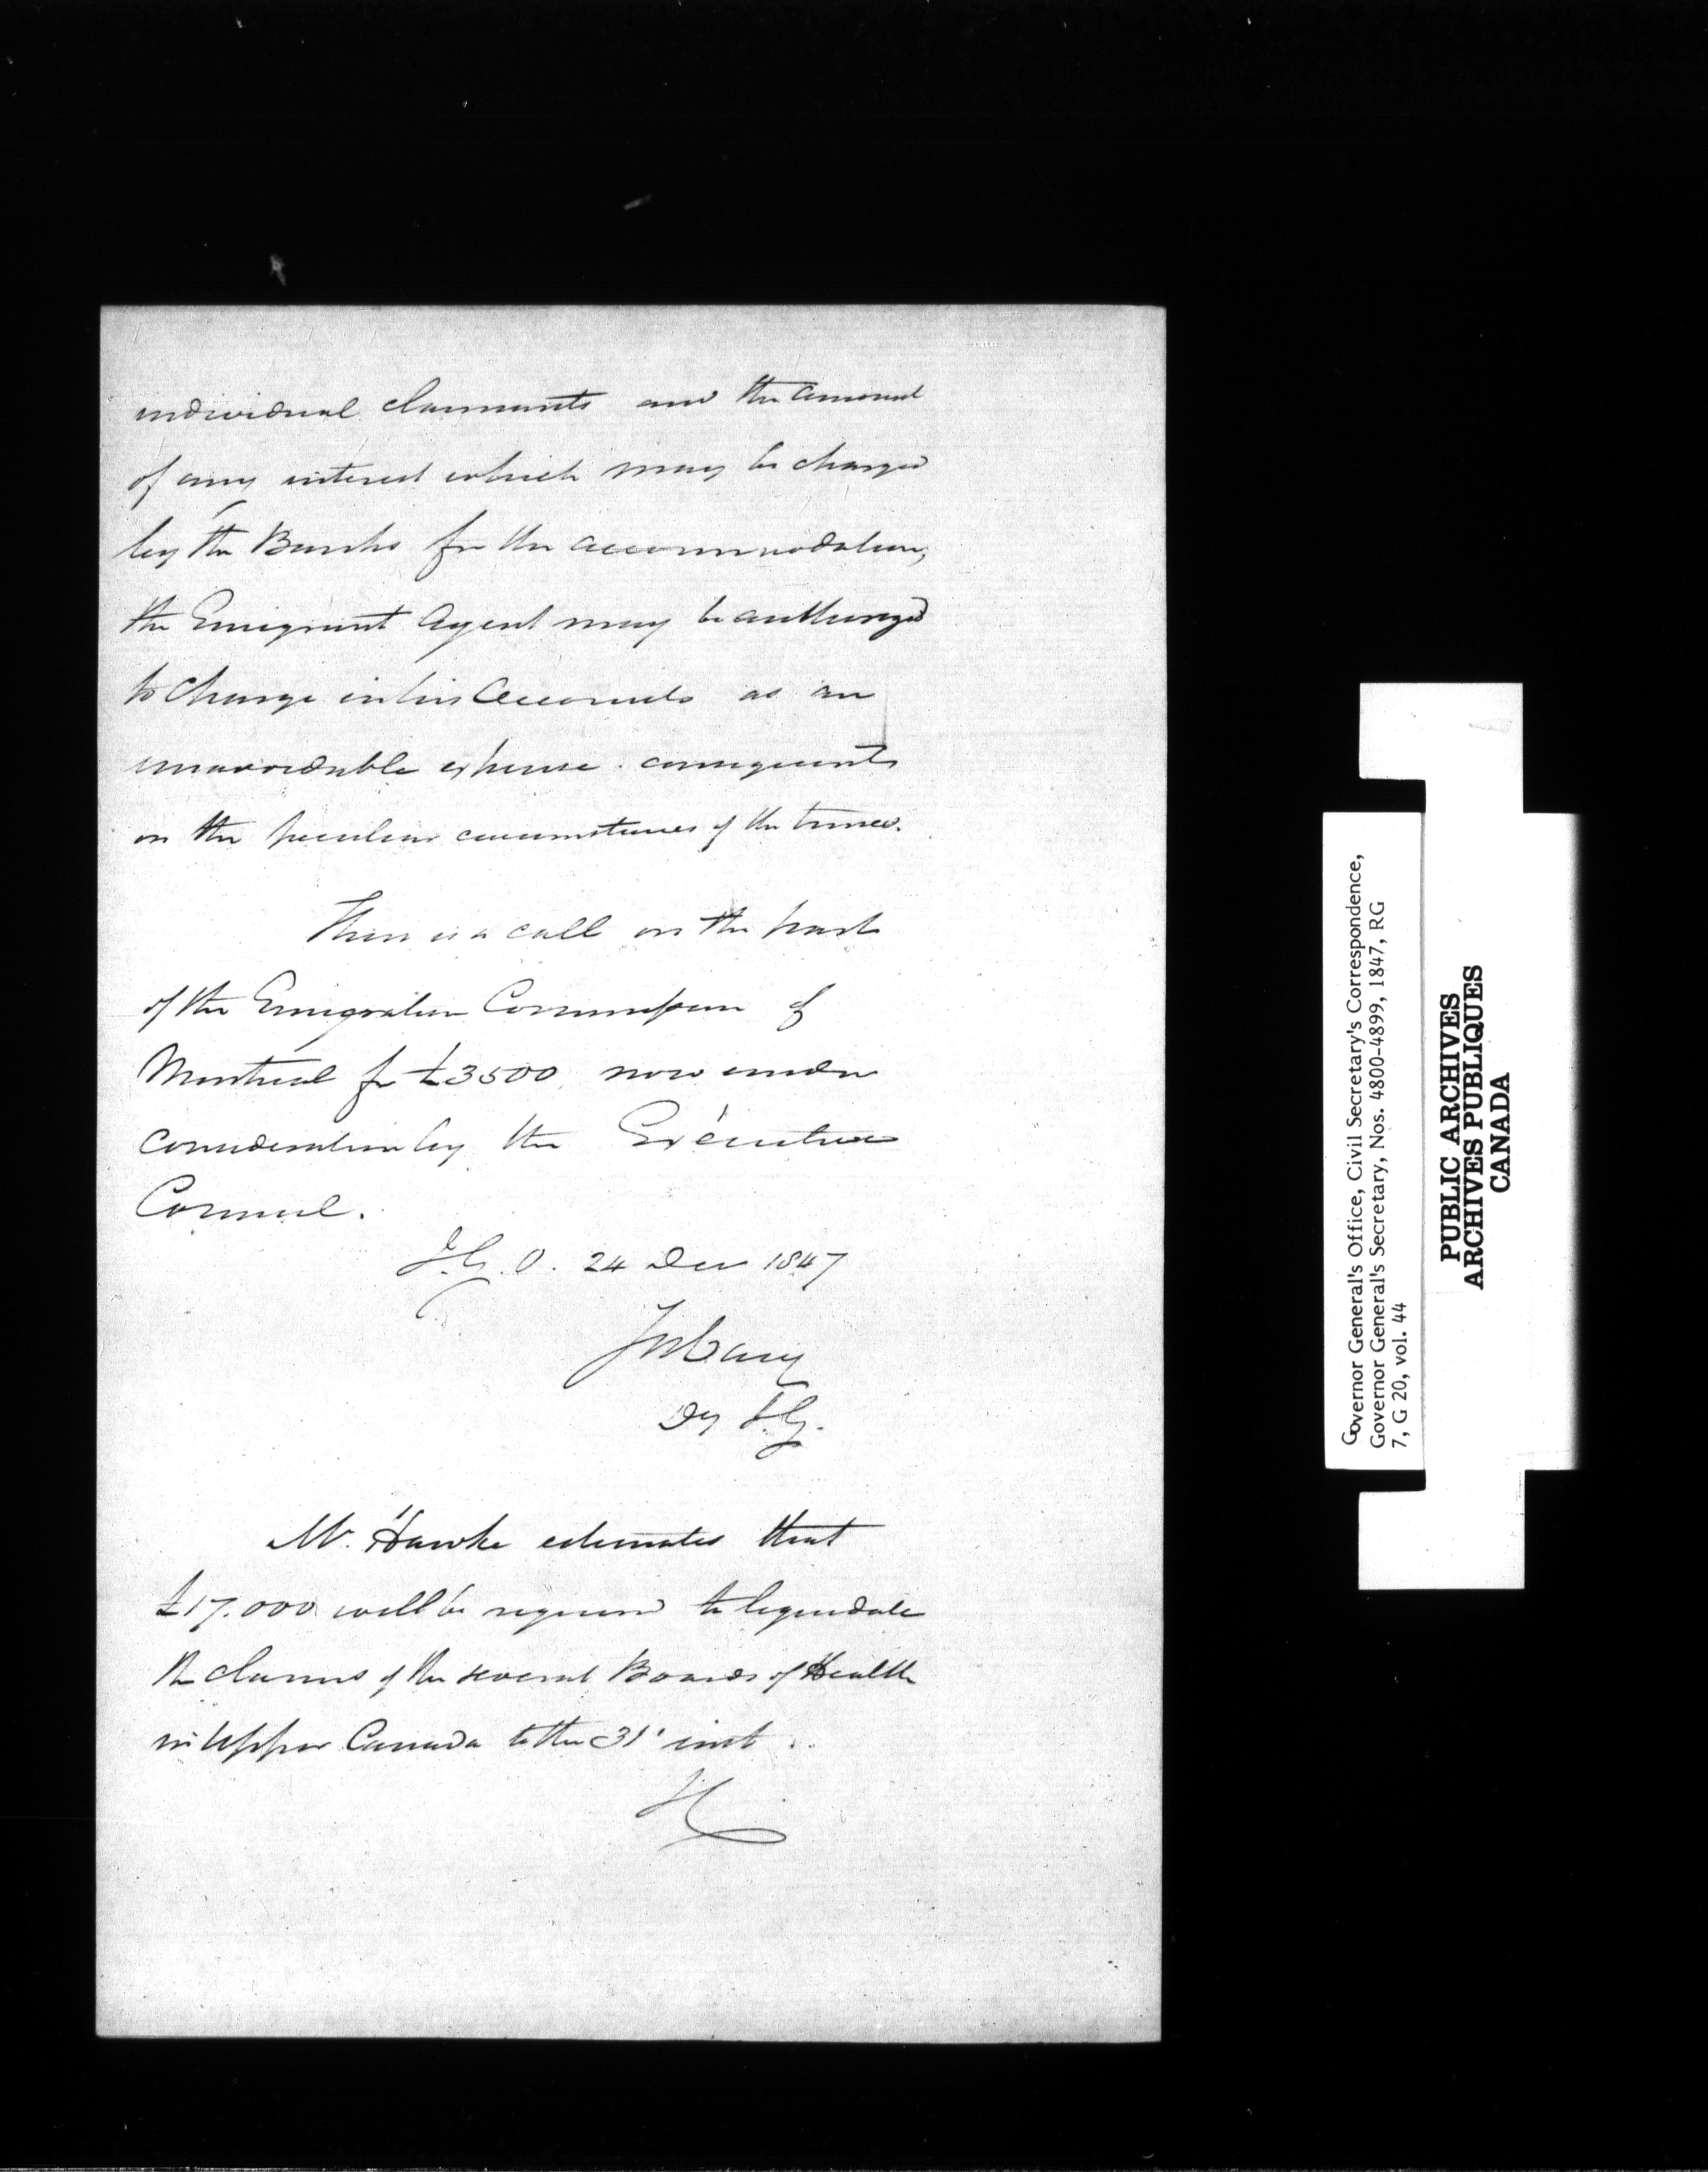 individual claimants and the amount
of any interest which may be charged
by the Banks for the accommodation,
the Emigrant Agent may be authorized
to charge in his Accounts as an
unavoidable expense consequent
on the peculiar circumstances of the times.
There is a call on the part
of the Emigration Commission of
Montreal for £3500 now under
consideration by the Executive
Council.
I.G.O. 24 Dec 1847
Jos Cary
Dy I.G.
Mr. Hawke estimates that
£17.000 will be required to liquidate
the claims of the several Boards of Health
in Upper Canada to the 31st inst.
Governor General's Office, Civil Secretary's Correspondence,
Governor General's Secretary, Nos. 4800-4899, 1847, RG
7, G 20, vol. 44
PUBLIC ARCHIVES
ARCHIVES PUBLIQUES
CANADA